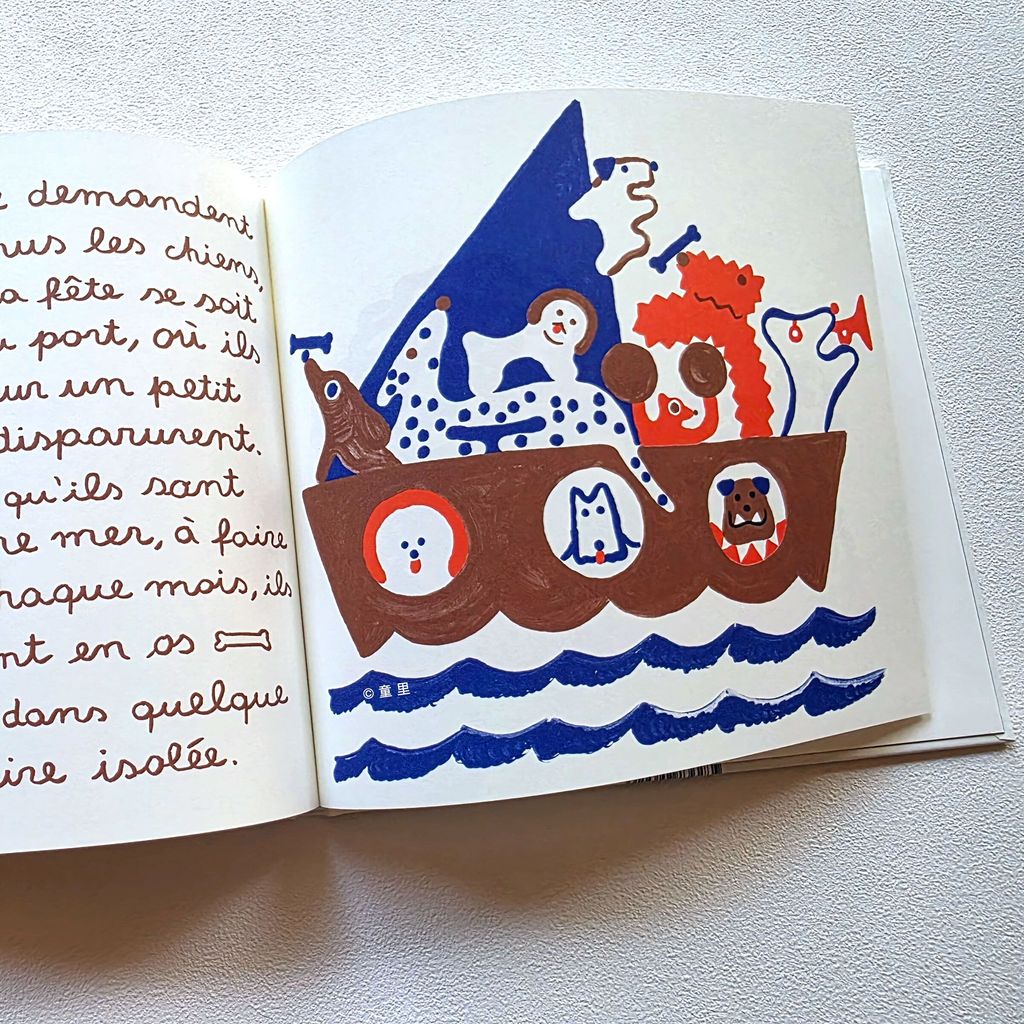 demandent
les chiens,
fête se soit
port, où ils
un petit
disparurent.
qu'ils sont
mer, à faire
chaque mois, ils
en os
dans quelque
isolée.
© 童里